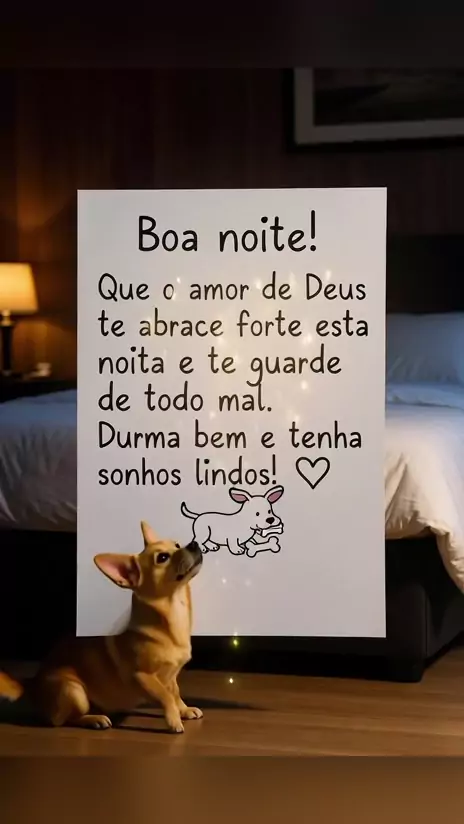 Boa noite!
Que o amor de Deus
te abrace forte esta
noita e te guarde
de todo mal.
Durma bem e tenha
sonhos lindos! ♡